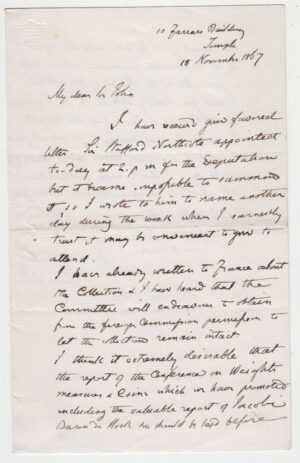 10 Farrars Building
Temple
18 November 1867
My dear Sir John
I have received your favored
letter. Sir Stafford Northcote appointed
to-day at 2. p m for the Deputation
but it became impossible to summon
it so I wrote to him to name another
day during the week when I earnestly
trust it may be convenient to you to
attend.
I have already written to France about
the Collection & I have heard that the
Committee will endeavour to obtain
from the foreign Commissions permission to
let the Collections remain intact
I think it extremely desirable that
the report of the Conference on Weights
measures & Coins which we have promoted
including the valuable report of Jacobi
Baron de Hock &c should be laid before